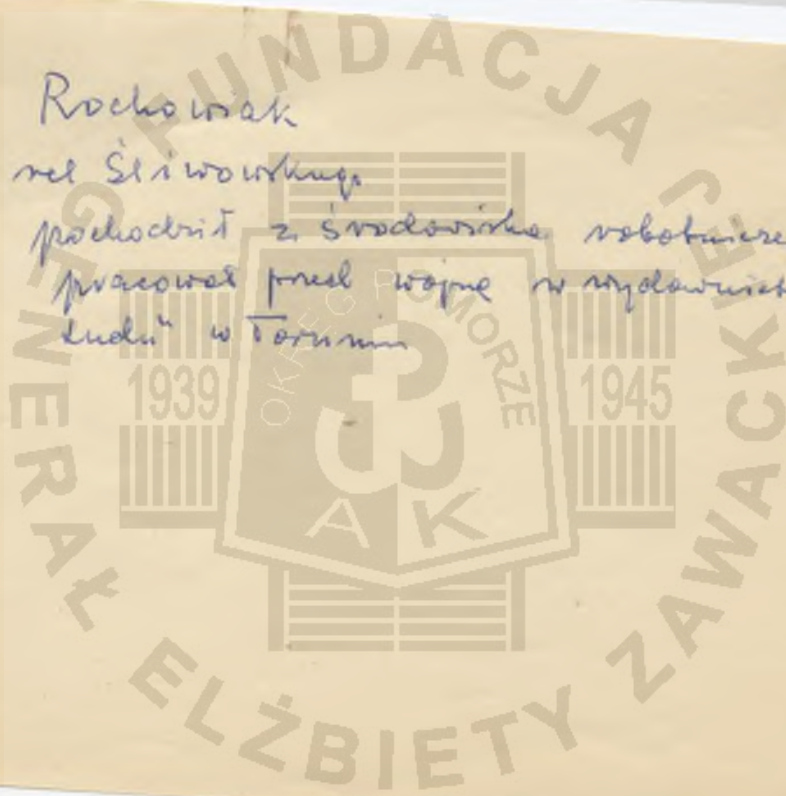 Rochowiak
vel Śliwowskiego
pochodził z środowiska robotnicze
pracował przed wojną w wydawnict
Ludu" w Toruniu
FUNDACJA
GENERAŁ ELŻBIETY ZAWACKIEJ
OKRĘG POMORZE
1939
1945
AK